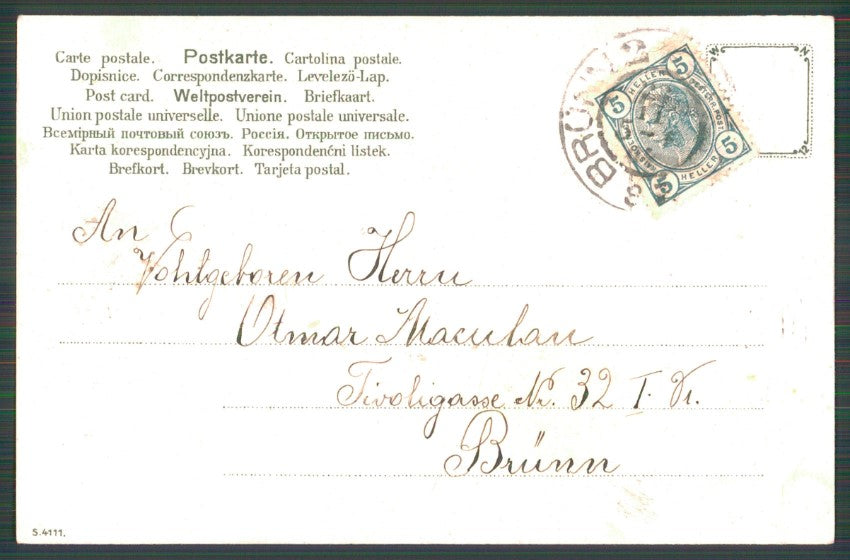 Carte postale. Postkarte. Cartolina postale.
Dopisnice. Correspondenzkarte. Levelező-Lap.
Post card. Weltpostverein. Briefkaart.
Union postale universelle. Unione postale universale.
Всемірный почтовый союзъ. Россія. Открытое письмо.
Karta korespondencyjna. Korespondenční listek.
Brefkort. Brevkort. Tarjeta postal.
BRÜNN 2
5 HELLER 5
5 HELLER 5
An
Wohlgeboren Herrn
Otmar Maculan
Tivoligasse Nr. 32 I.
Brünn
S.4111.